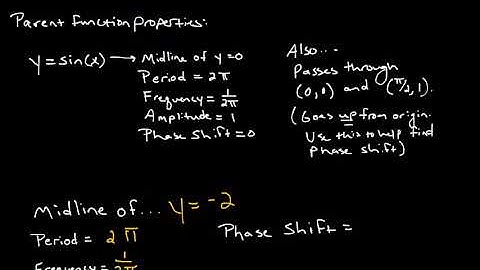 Parent function properties:
y = sin(x) → Midline of y=0
Period = 2π
Frequency = 1/2π
Amplitude = 1
Phase Shift = 0
Also...
Passes through
(0,0) and (π/2, 1).
(Goes up from origin.
Use this to help find
phase shift)
Midline of... y = -2
Period = 2π
Phase Shift =
Frequency = 1/2π